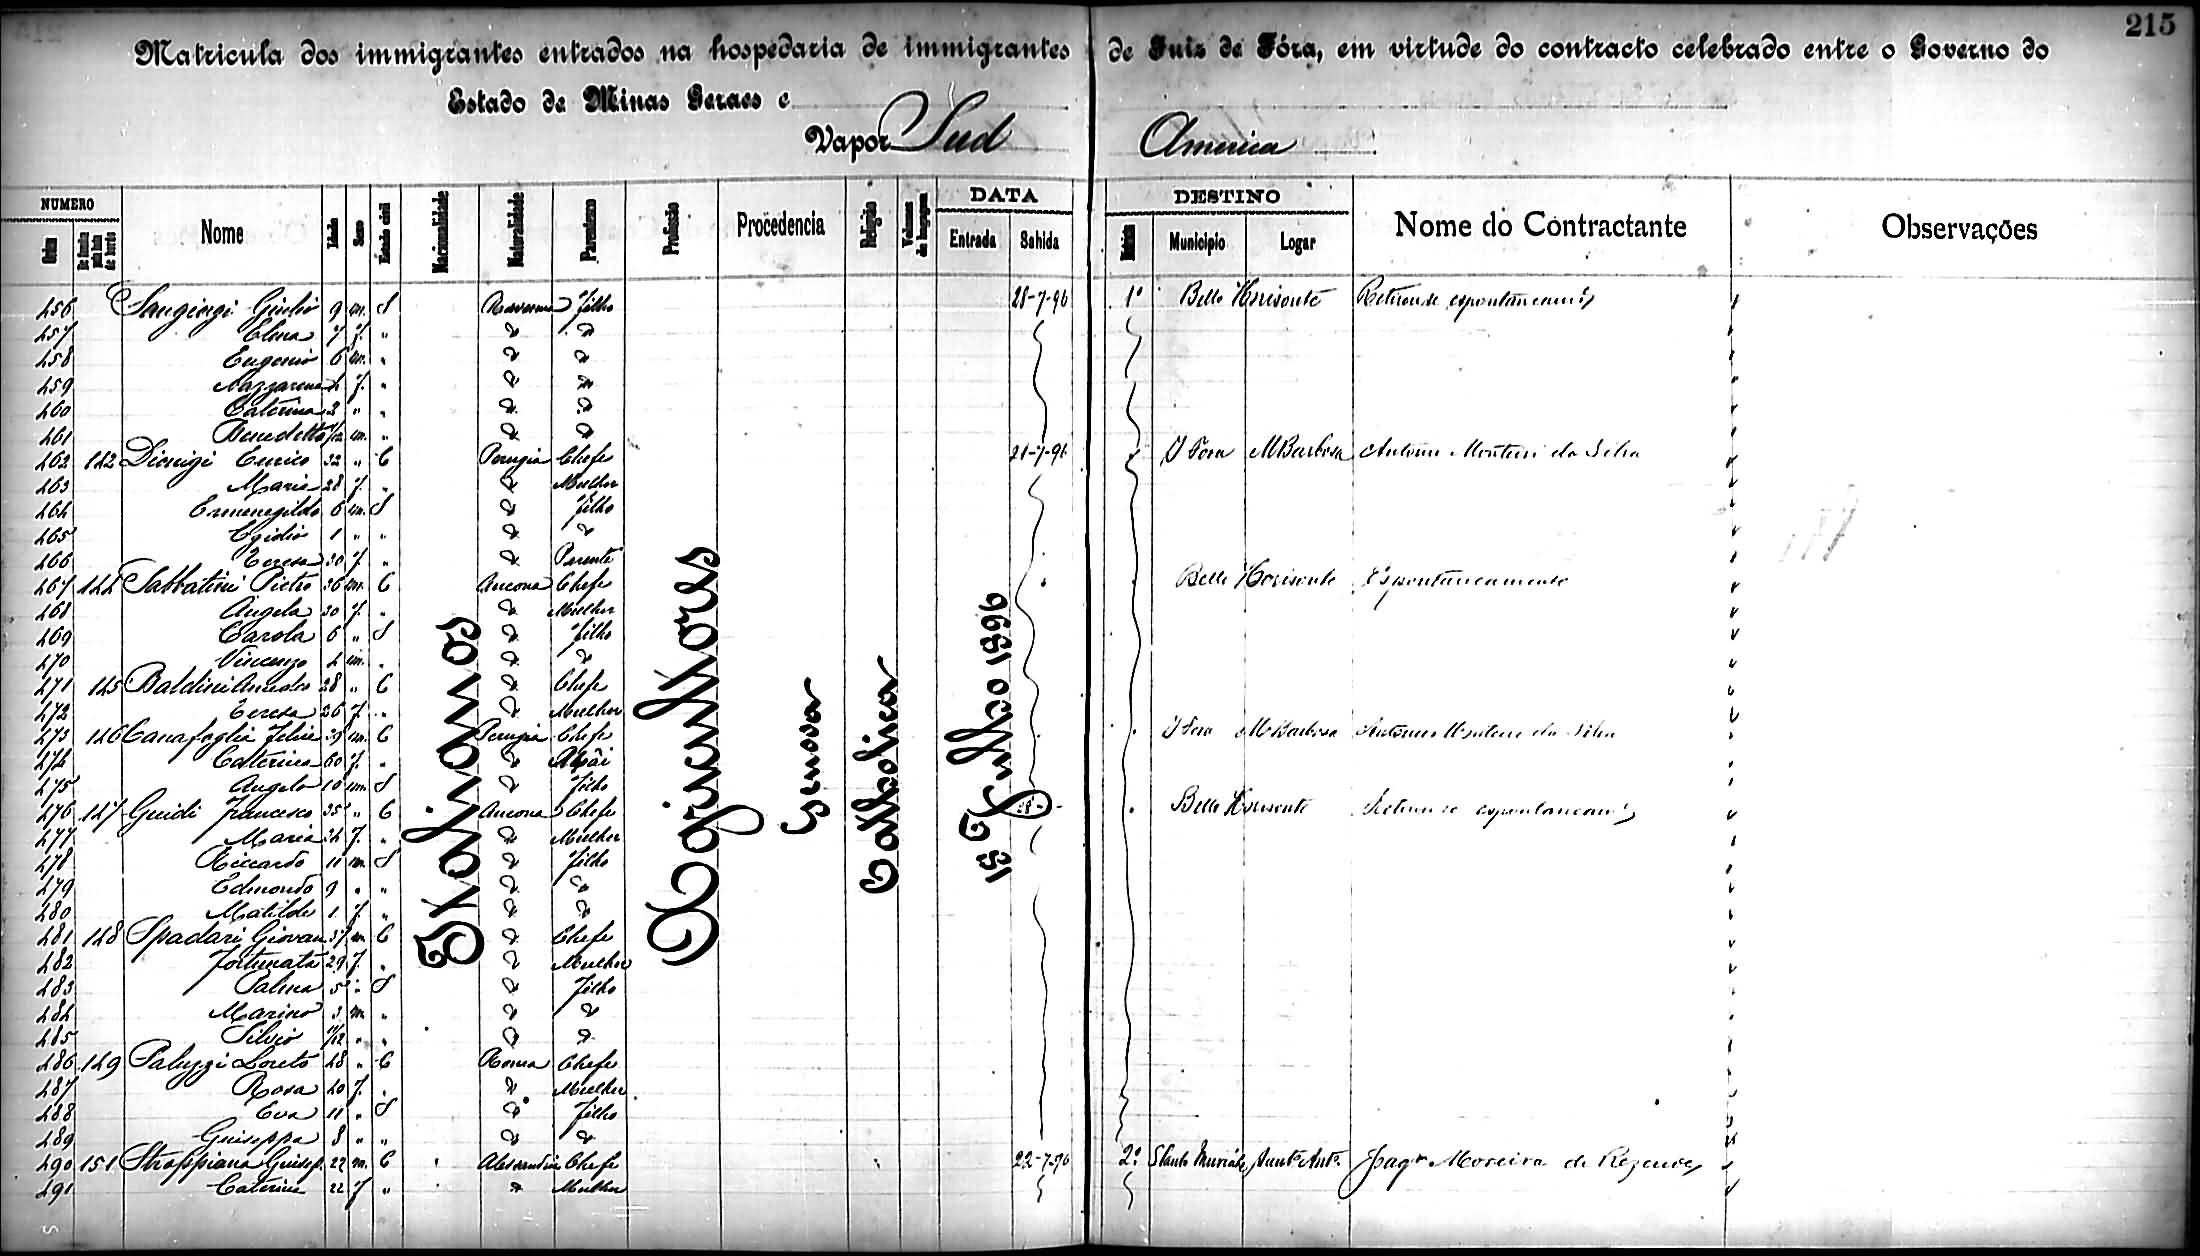 215
Matricula dos immigrantes entrados na hospedaria de immigrantes de Juiz de Fóra, em virtude do contracto celebrado entre o Governo do
Estado de Minas Geraes e
Vapor Sud America
NUMERO DATA DESTINO
Ordem Nome Idade Sexo Estado civil Nacionalidade Naturalidade Parentesco Profissão Procedencia Religião Volumes de bagagem Entrada Sahida Municipio Logar Nome do Contractante Observações
Italianos Agricultores Genova Catholica 15 Julho 1896
456 Sangiorgi Giulio 9 m. S Ravenna filho 28-7-96 1º Bello Horisonte
457 Elena 7 f. "
458 Eugenio 6 m. "
459 Nazzarena 4 f. "
460 Caterina 2 " "
461 Benedetto /12 m. "
462 142 Dionigi Enrico 32 " C Perugia Chefe 21-7-96 J Fora M Barbosa Antonio Monteiro da Silva
463 Maria 28 f. " Mulher
464 Ermenegildo 6 m. S filho
465 Egidio 1 " "
466 Teresa 30 f. " Parente
467 144 Sabbatini Pietro 36 m. C Ancona Chefe Bello Horisonte Espontaneamente
468 Angela 30 f. " Mulher
469 Carola 6 " S filho
470 Vincenzo 4 m. "
471 145 Baldini 28 " C Chefe
472 Teresa 26 f. " Mulher
473 146 Canafoglia Felice 39 m. C Perugia Chefe J Fora M Barbosa Antonio Monteiro da Silva
474 Caterina 60 f. " Mãi
475 Angelo 10 m. S filho
476 147 Guidi Francesco 35 " C Ancona Chefe 28 Bello Horisonte
477 Maria 34 f. " Mulher
478 Riccardo 11 m. S filho
479 Edmondo 9 " "
480 Matilde 1 f. "
481 148 Spadari Giovan 37 m C Chefe
482 Fortunata 29 f. " Mulher
483 Palma 5 " S filho
484 Marino 3 m. "
485 Silvio /12 " "
486 149 Paluzzi Loreto 48 " C Roma Chefe
487 Rosa 40 f. " Mulher
488 Eva 11 " S filho
489 Giuseppa 8 " "
490 151 Strappiana Giusep. 22 m. C Alessandria Chefe 22-7-96 2º Moreira de Rezende
491 Caterina 22 f " Mulher